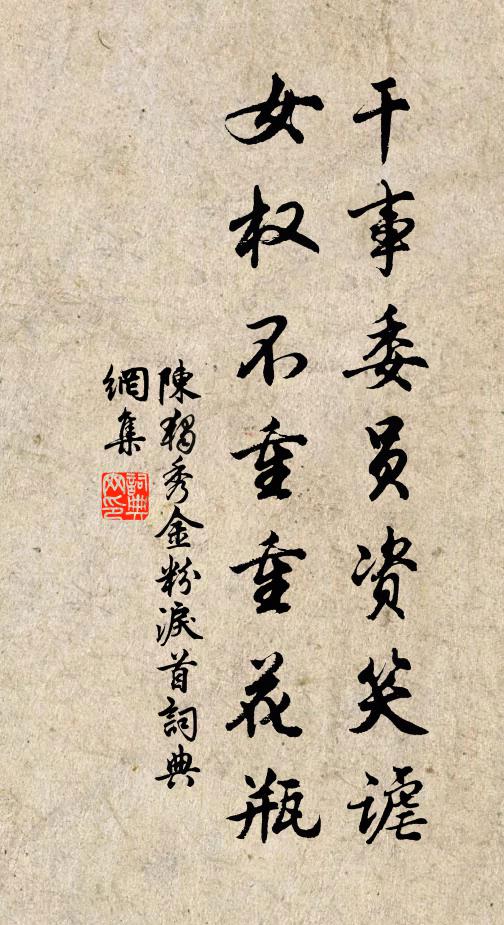 干事委员资笑谑
女权不重重花瓶
陳獨秀金粉淚首詞典
網集
詞典
網印